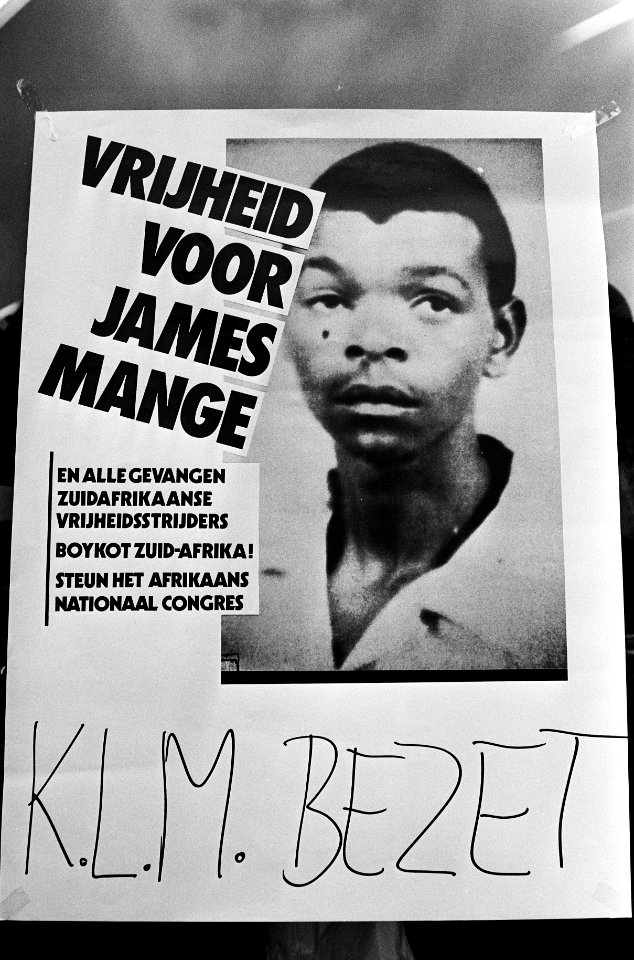 VRIJHEID
VOOR
JAMES
MANGE
EN ALLE GEVANGEN
ZUIDAFRIKAANSE
VRIJHEIDSSTRIJDERS
BOYKOT ZUID-AFRIKA!
STEUN HET AFRIKAANS
NATIONAAL CONGRES
K.L.M. BEZET